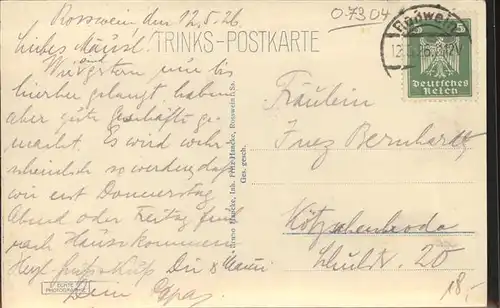 Rosswein, den 12.5.26.
0-7304
Liebes Mäusl!
TRINKS-POSTKARTE
Roßwein
12.5.26.
Deutsches
Reich
Wir sind gestern nur bis
hierher gelangt haben
aber gute Geschäfte ge-
macht. Es wird wahr-
scheinlich so werden, daß
wir erst Donnerstag
Abend oder Freitag früh
nach Hause kommen
Herzl. Gruß & Kuß
Dein
Bruno Hancke, Inh. Fritz Hancke, Rosswein i. Sa.
Ges. gesch.
ECHTE
PHOTOGRAPHIE
Fräulein
Bernhardt
Kötzschenbroda
Schulstr. 20
18,-